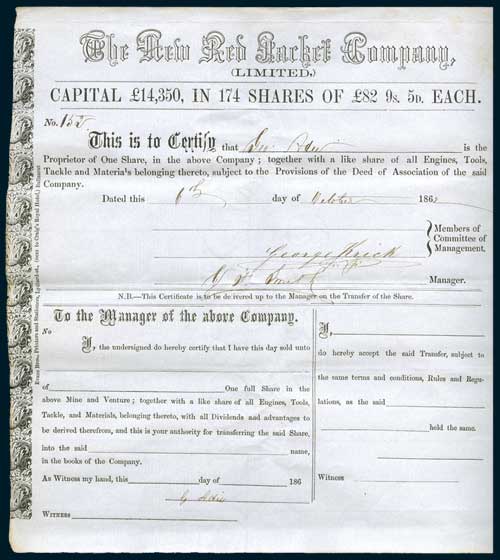 The New Red Jacket Company,
(LIMITED.)
CAPITAL £14,350, IN 174 SHARES OF £82 9s. 5D. EACH.
No. 152
This is to Certify that is the
Proprietor of One Share, in the above Company; together with a like share of all Engines, Tools,
Tackle and Materia's belonging thereto, subject to the Provisions of the Deed of Association of the said
Company.
Dated this 6th day of October 186
Members of
Committee of
Management.
George Krick
Manager.
N.B.—This Certificate is to be delivered up to the Manager on the Transfer of the Share.
To the Manager of the above Company.
No
I, the undersigned do hereby certify that I have this day sold unto
of One full Share in the
above Mine and Venture; together with a like share of all Engines, Tools,
Tackle, and Materials, belonging thereto, with all Dividends and advantages to
be derived therefrom, and this is your authority for transferring the said Share,
into the said name,
in the books of the Company.
As Witness my hand, this day of 186
WITNESS
I,
do hereby accept the said Transfer, subject to
the same terms and conditions, Rules and Regu-
lations, as the said
held the same.
Witness
Evans Bros. Printers and Stationers, (next to Craig's Royal Hotel,) Ballaarat